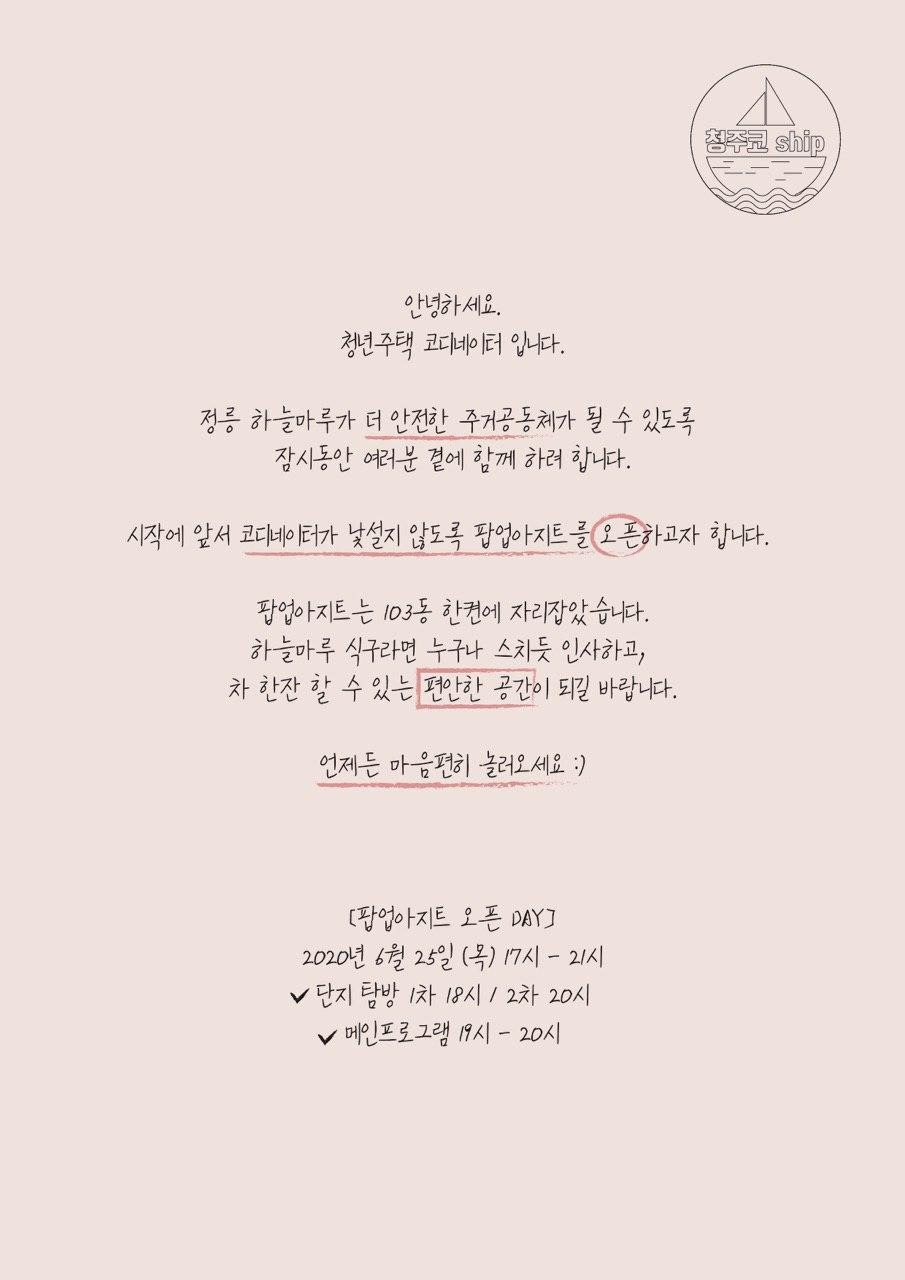 청주코 ship
안녕하세요.
청년주택 코디네이터 입니다.
정릉 하늘마루가 더 안전한 주거공동체가 될 수 있도록
잠시동안 여러분 곁에 함께 하려 합니다.
시작에 앞서 코디네이터가 낯설지 않도록 팝업아지트를 오픈하고자 합니다.
팝업아지트는 103동 한켠에 자리잡았습니다.
하늘마루 식구라면 누구나 스치듯 인사하고,
차 한잔 할 수 있는 편안한 공간이 되길 바랍니다.
언제든 마음편히 놀러오세요 :)
[팝업아지트 오픈 DAY]
2020년 6월 25일 (목) 17시 - 21시
✓ 단지 탐방 1차 18시 / 2차 20시
✓ 메인프로그램 19시 - 20시